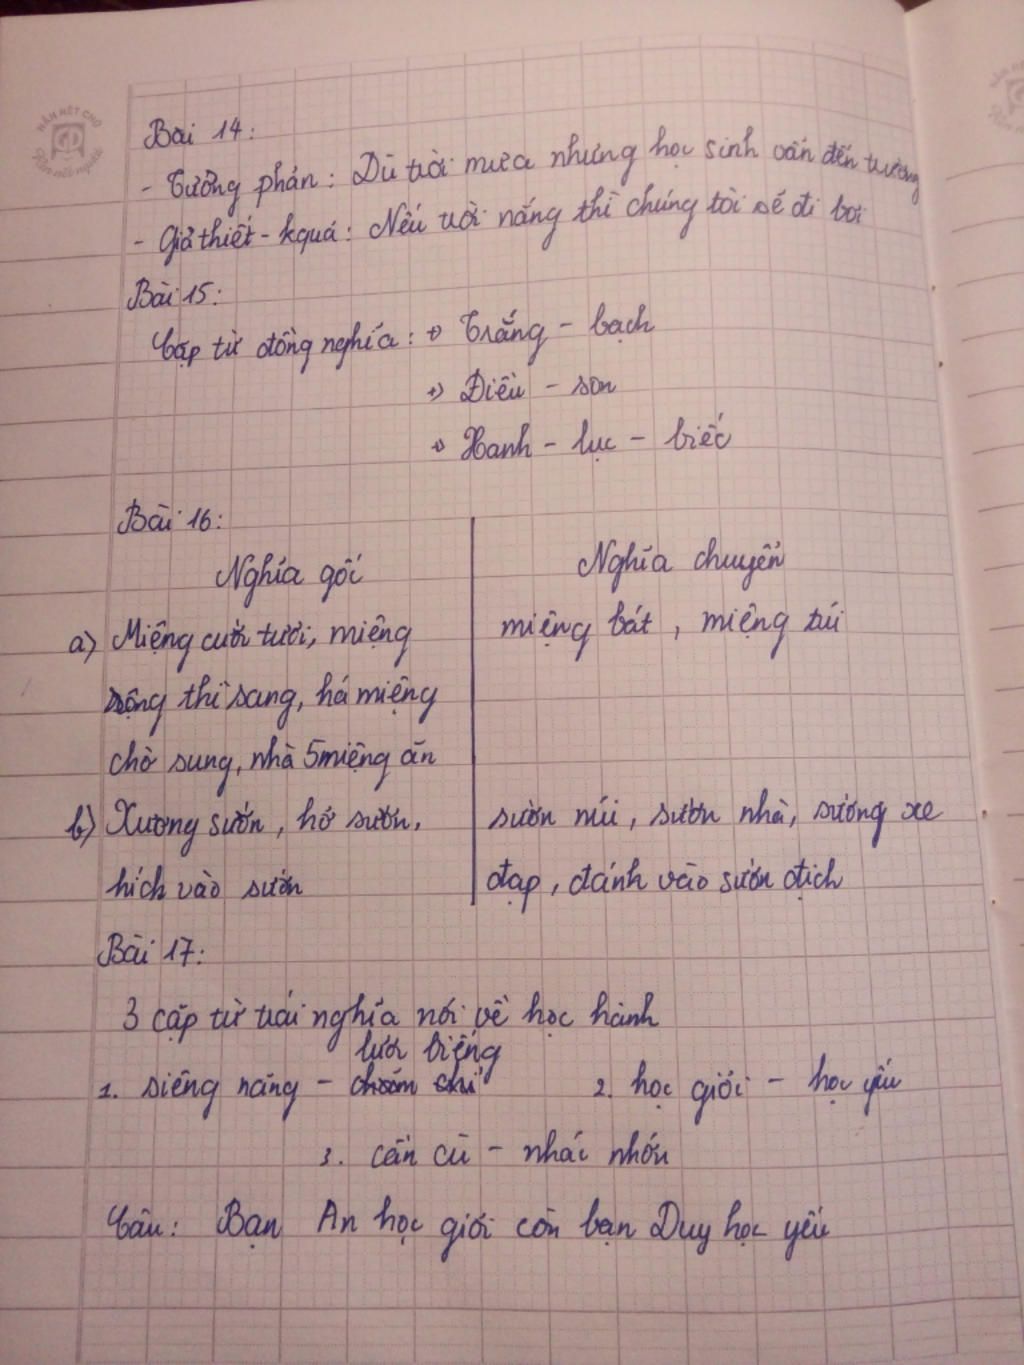 HẦN NÉT CHỮ
Rèn nết người
Bài 14:
- Tương phản: Dù trời mưa nhưng học sinh vẫn đến trường
- Giả thiết - kquá: Nếu trời nắng thì chúng tôi sẽ đi bơi
Bài 15:
Cặp từ đồng nghĩa: +) Trắng - bạch
+) Điều - son
+) Xanh - lục - biếc
Bài 16:
Nghĩa gốc Nghĩa chuyển
a) Miệng cười tươi, miệng miệng bát, miệng túi
rộng thì sang, há miệng
chờ sung, nhà 5 miệng ăn
b) Xương sườn, hở sườn, sườn núi, sườn nhà, sường xe
hích vào sườn đạp, đánh vào sườn địch
Bài 17:
3 cặp từ trái nghĩa nói về học hành
lười biếng
1. siêng năng - chăm chỉ 2. học giỏi - học yếu
3. cần cù - nhác nhớn
Câu: Bạn An học giỏi còn bạn Duy học yếu